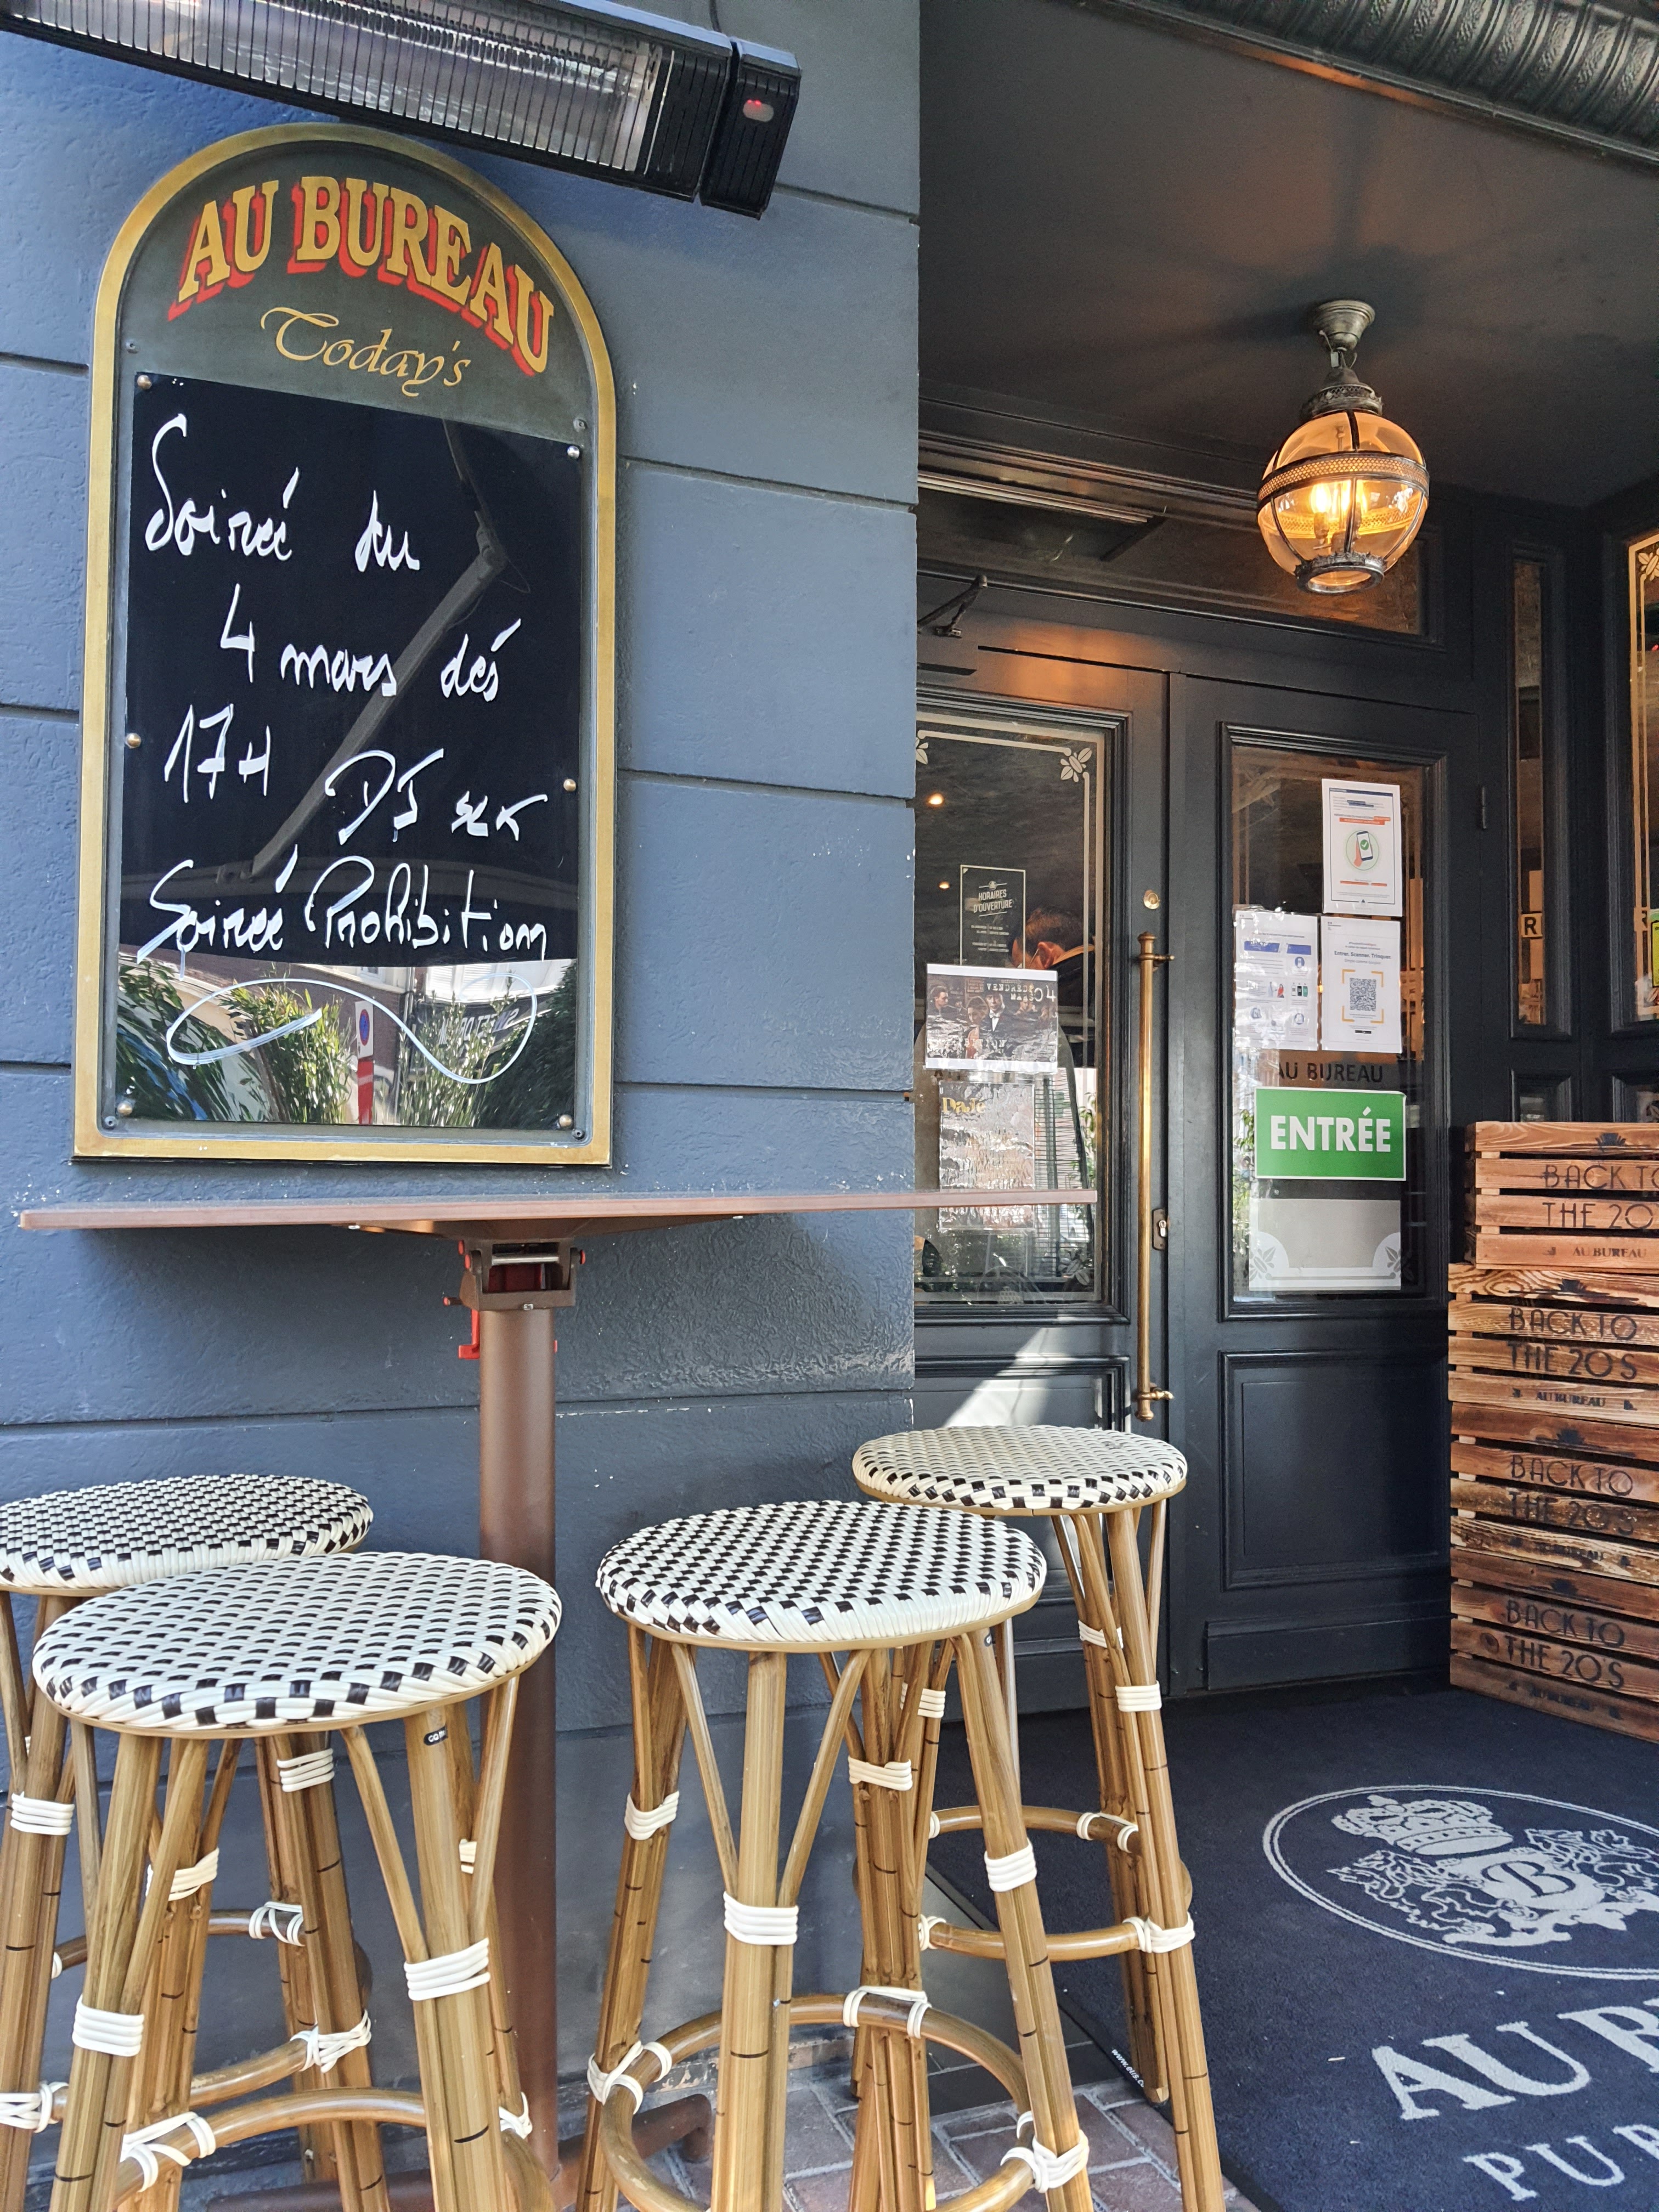 AU BUREAU
Today's
Soirée du
4 mars dés
17H DJ set
Soirée Prohibition
HORAIRES
D'OUVERTURE
VENDREDI 04
MARS
Entrez. Scannez. Trinquez.
AU BUREAU
ENTRÉE
R
BACK TO
THE 20'
AU BUREAU
BACK TO
THE 20'S
AU BUREAU
BACK TO
THE 20'S
AU BUREAU
BACK TO
THE 20'S
AU BUREAU
B
AU B
PUB